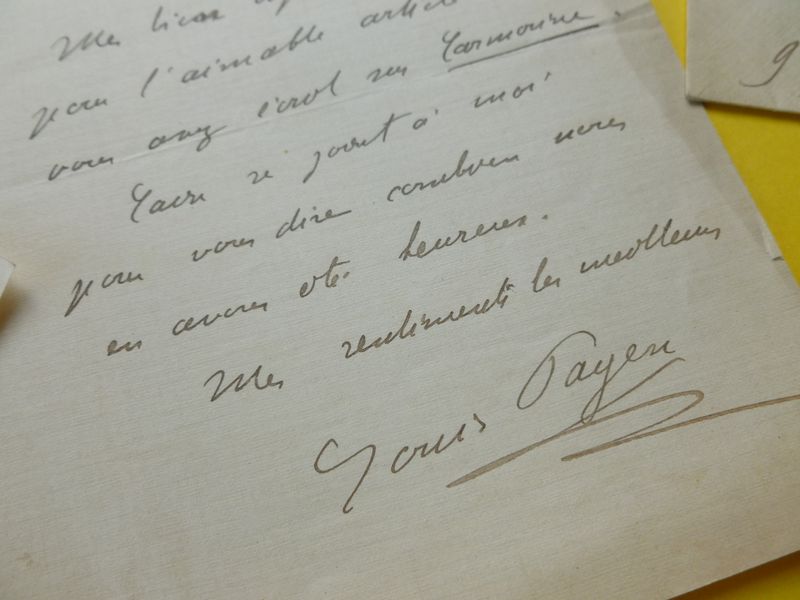 Mes bien
pour l'aimable article
9
vous avez écrit sur Carmosine.
Cain se joint à moi
pour vous dire combien nous
en avons été heureux.
Mes sentiments les meilleurs
Louis Payen